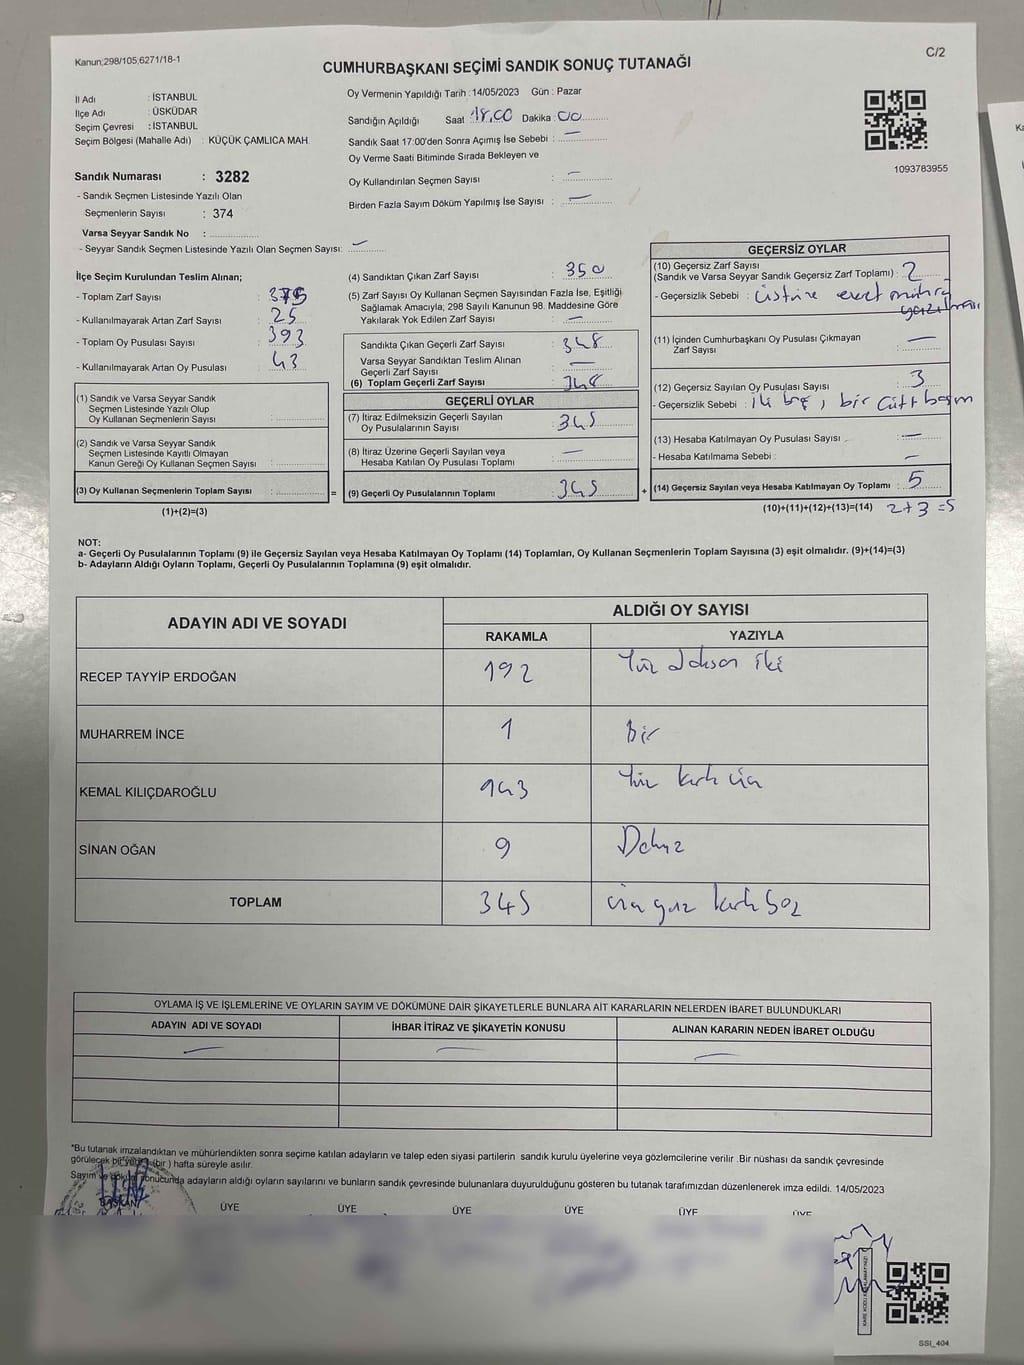 Kanun;298/105;6271/18-1
C/2
CUMHURBAŞKANI SEÇİMİ SANDIK SONUÇ TUTANAĞI
İl Adı : İSTANBUL
İlçe Adı : ÜSKÜDAR
Seçim Çevresi : İSTANBUL
Seçim Bölgesi (Mahalle Adı) : KÜÇÜK ÇAMLICA MAH.
Sandık Numarası : 3282
- Sandık Seçmen Listesinde Yazılı Olan
Seçmenlerin Sayısı : 374
Varsa Seyyar Sandık No :
- Seyyar Sandık Seçmen Listesinde Yazılı Olan Seçmen Sayısı: —
Oy Vermenin Yapıldığı Tarih :14/05/2023 Gün : Pazar
Sandığın Açıldığı Saat 18.00 Dakika 00
Sandık Saat 17:00'den Sonra Açımış İse Sebebi : —
Oy Verme Saati Bitiminde Sırada Bekleyen ve
Oy Kullandırılan Seçmen Sayısı : —
Birden Fazla Sayım Döküm Yapılmış İse Sayısı : —
1093783955
İlçe Seçim Kurulundan Teslim Alınan;
- Toplam Zarf Sayısı : 375
- Kullanılmayarak Artan Zarf Sayısı : 25
- Toplam Oy Pusulası Sayısı : 393
- Kullanılmayarak Artan Oy Pusulası : 43
(1) Sandık ve Varsa Seyyar Sandık
Seçmen Listesinde Yazılı Olup
Oy Kullanan Seçmenlerin Sayısı :
(2) Sandık ve Varsa Seyyar Sandık
Seçmen Listesinde Kayıtlı Olmayan
Kanun Gereği Oy Kullanan Seçmen Sayısı :
(3) Oy Kullanan Seçmenlerin Toplam Sayısı :
(1)+(2)=(3)
(4) Sandıktan Çıkan Zarf Sayısı : 350
(5) Zarf Sayısı Oy Kullanan Seçmen Sayısından Fazla İse, Eşitliği
Sağlamak Amacıyla; 298 Sayılı Kanunun 98. Maddesine Göre
Yakılarak Yok Edilen Zarf Sayısı : —
Sandıkta Çıkan Geçerli Zarf Sayısı : 348
Varsa Seyyar Sandıktan Teslim Alınan
Geçerli Zarf Sayısı : —
(6) Toplam Geçerli Zarf Sayısı : 348
GEÇERLİ OYLAR
(7) İtiraz Edilmeksizin Geçerli Sayılan
Oy Pusulalarının Sayısı : 345
(8) İtiraz Üzerine Geçerli Sayılan veya
Hesaba Katılan Oy Pusulası Toplamı : —
= (9) Geçerli Oy Pusulalarının Toplamı : 345
GEÇERSİZ OYLAR
(10) Geçersiz Zarf Sayısı
(Sandık ve Varsa Seyyar Sandık Geçersiz Zarf Toplamı) : 2
- Geçersizlik Sebebi : üstüne evet mührü
yazılması
(11) İçinden Cumhurbaşkanı Oy Pusulası Çıkmayan
Zarf Sayısı : —
(12) Geçersiz Sayılan Oy Pusulası Sayısı : 3
- Geçersizlik Sebebi : iki boş, bir çift basım
(13) Hesaba Katılmayan Oy Pusulası Sayısı : —
- Hesaba Katılmama Sebebi : —
+ (14) Geçersiz Sayılan veya Hesaba Katılmayan Oy Toplamı : 5
(10)+(11)+(12)+(13)=(14) 2+3=5
NOT:
a- Geçerli Oy Pusulalarının Toplamı (9) ile Geçersiz Sayılan veya Hesaba Katılmayan Oy Toplamı (14) Toplamları, Oy Kullanan Seçmenlerin Toplam Sayısına (3) eşit olmalıdır. (9)+(14)=(3)
b- Adayların Aldığı Oyların Toplamı, Geçerli Oy Pusulalarının Toplamına (9) eşit olmalıdır.
ADAYIN ADI VE SOYADI
ALDIĞI OY SAYISI
RAKAMLA YAZIYLA
RECEP TAYYİP ERDOĞAN 192 Yüz doksan iki
MUHARREM İNCE 1 bir
KEMAL KILIÇDAROĞLU 143 Yüz kırk üç
SİNAN OĞAN 9 Dokuz
TOPLAM 345 üç yüz kırk beş
OYLAMA İŞ VE İŞLEMLERİNE VE OYLARIN SAYIM VE DÖKÜMÜNE DAİR ŞİKAYETLERLE BUNLARA AİT KARARLARIN NELERDEN İBARET BULUNDUKLARI
ADAYIN ADI VE SOYADI İHBAR İTİRAZ VE ŞİKAYETİN KONUSU ALINAN KARARIN NEDEN İBARET OLDUĞU
— — —
*Bu tutanak imzalandıktan ve mühürlendikten sonra seçime katılan adayların ve talep eden siyasi partilerin sandık kurulu üyelerine veya gözlemcilerine verilir .Bir nüshası da sandık çevresinde
görülecek bir yere (bir ) hafta süreyle asılır.
Sayım ve döküm sonucunda adayların aldığı oyların sayılarını ve bunların sandık çevresinde bulunanlara duyurulduğunu gösteren bu tutanak tarafımızdan düzenlenerek imza edildi. 14/05/2023
BAŞKAN ÜYE ÜYE ÜYE ÜYE ÜYE ÜYE
SSI_404